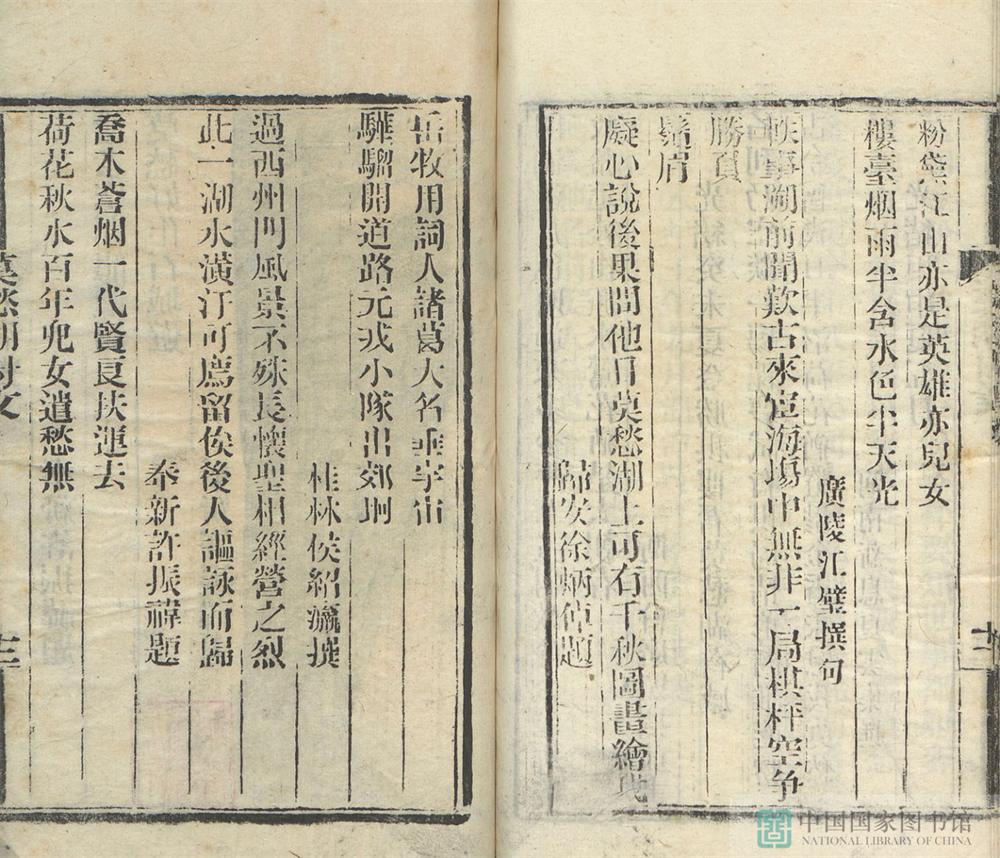 粉黛江山亦是英雄亦兒女
樓臺烟雨半含水色半天光
廣陵江璧撰句
軼事溯前聞歎古來宦海場中無非一局棋枰空爭
勝負
癡心說後果問他日莫愁湖上可有千秋圖畫繪我
鬚眉
歸安徐炳倬題
岳牧用詞人諸葛大名垂宇宙
驊騮開道路元戎小隊出郊坰
桂林侯紹瀛撰
過西州門風景不殊長懷聖相經營之烈
此一湖水潢汙可薦留俟後人謳詠而歸
奉新許振禕題
喬木蒼烟一代賢良扶運去
荷花秋水百年兒女遣愁無
莫愁湖
十二
中国国家图书馆
NATIONAL LIBRARY OF CHINA